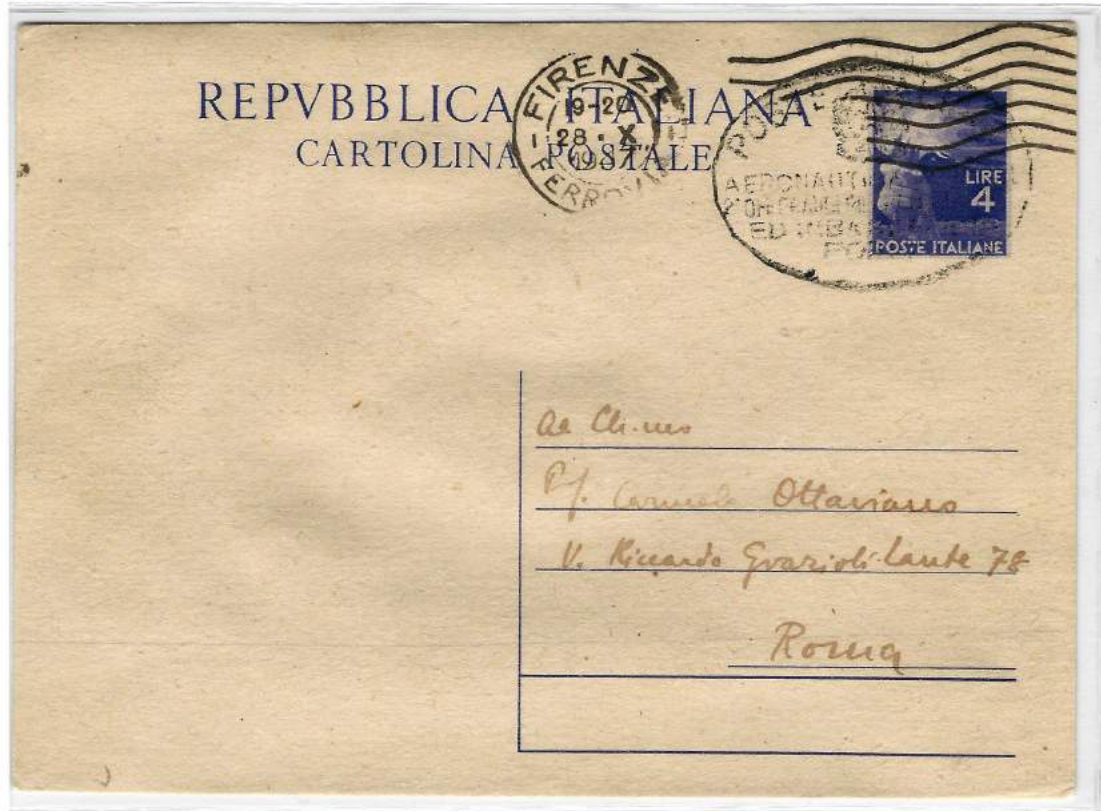 REPVBBLICA ITALIANA
CARTOLINA POSTALE
FIRENZE
19-20
28 · X
FERROVIA
LIRE
4
POSTE ITALIANE
Al Ch.mo
Pf. Carmelo Ottaviano
V. Riccardo Grazioli Lante 78
Roma